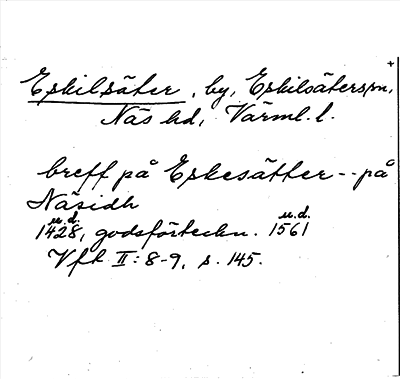 Eskilsäter, by, Eskilsäters sn,
Näs hd, Värml. l.
breff på Eskesätter -- på
Näsidh
u.d. u.d.
1428, godsförteckn. 1561
Vfk II: 8-9, s. 145.